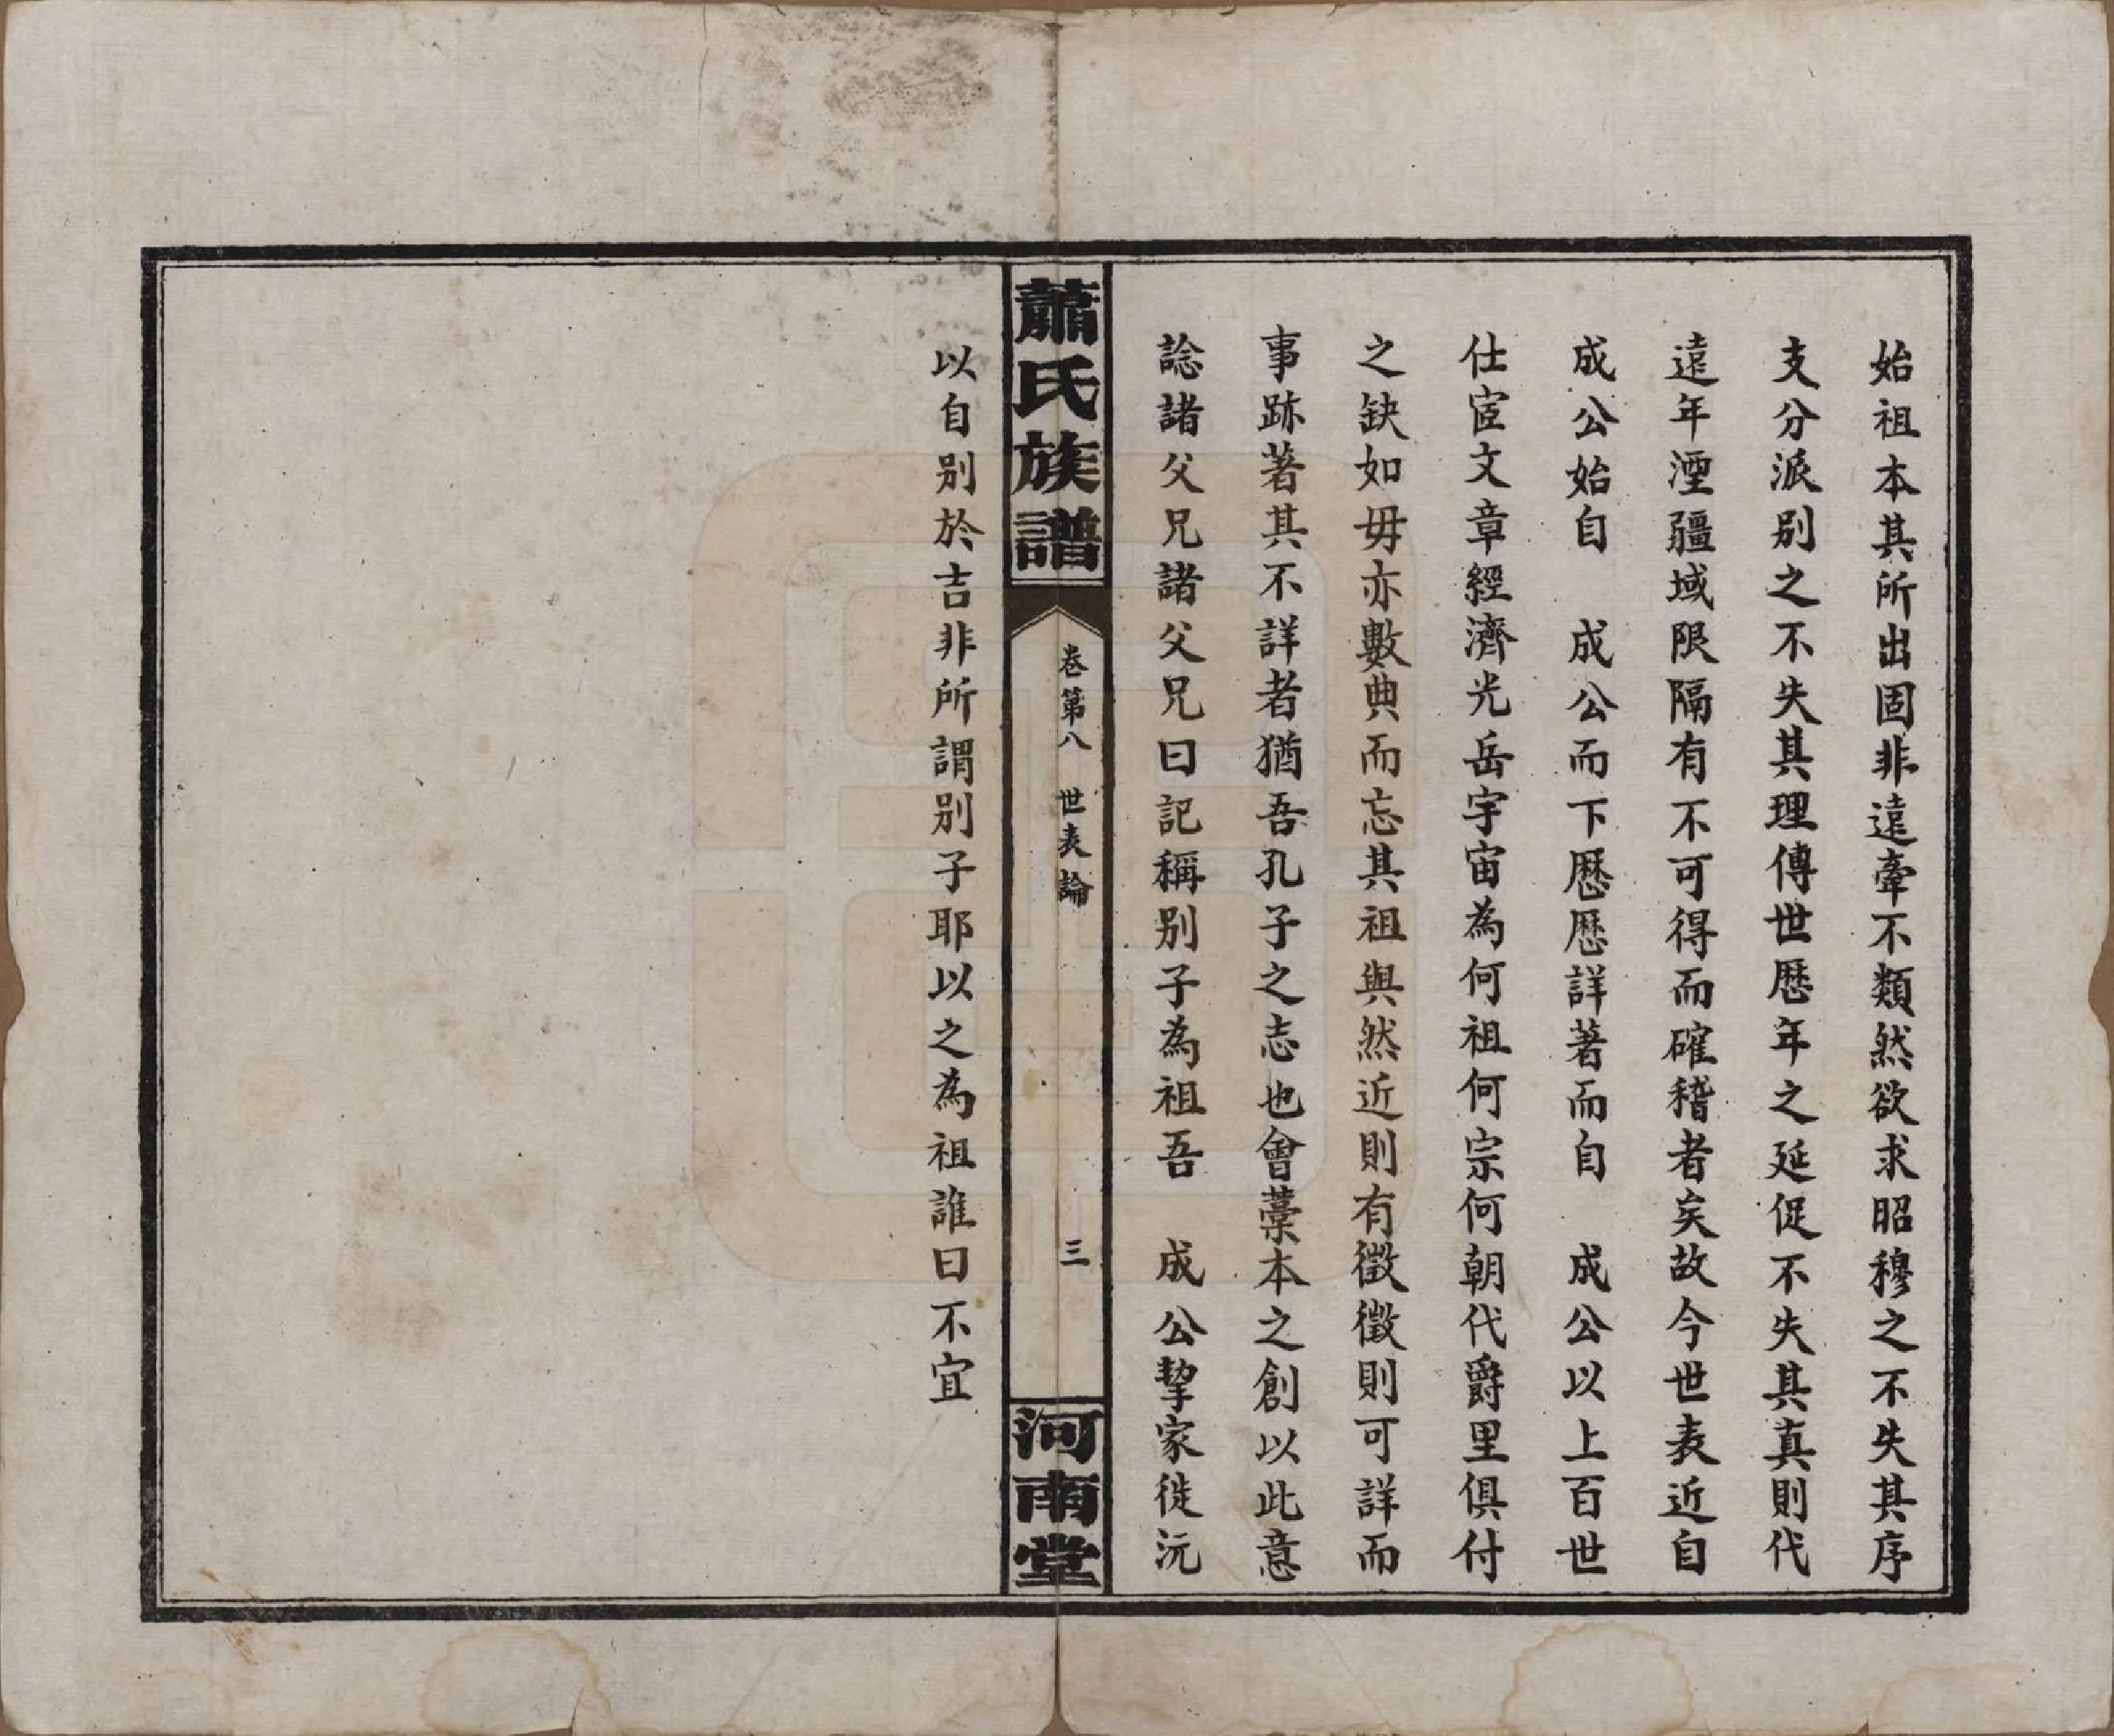 始祖本其所出固非遠牽不類然欲求昭穆之不失其序
支分派別之不失其理傳世歷年之延促不失其真則代
遠年湮疆域限隔有不可得而確稽者矣故今世表近自
成公始自 成公而下歷歷詳著而自 成公以上百世
仕宦文章經濟光岳宇宙為何祖何宗何朝代爵里俱付
之缺如毋亦數典而忘其祖與然近則有徵徵則可詳而
事跡著其不詳者猶吾孔子之志也會藁本之創以此意
諗諸父兄諸父兄曰記稱別子為祖吾 成公挈家徙沅
蕭氏族譜
卷第八 世表論
三
河南堂
以自別於吉非所謂別子耶以之為祖誰曰不宜